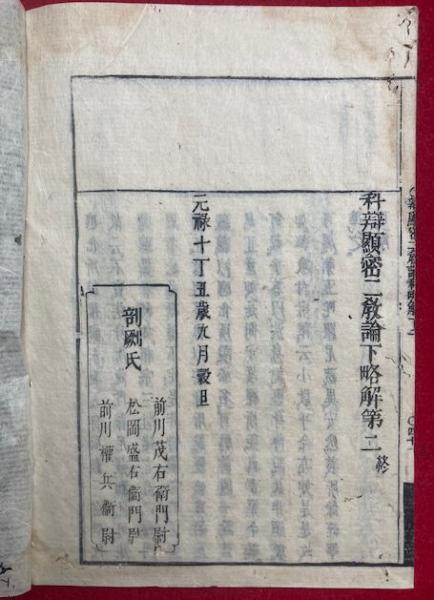 科辯顯密二教論下略解第二 終
元祿十丁丑歲九月穀旦
剞劂氏
前川茂右衞門尉
松岡盛右衞門尉
前川權兵衞尉